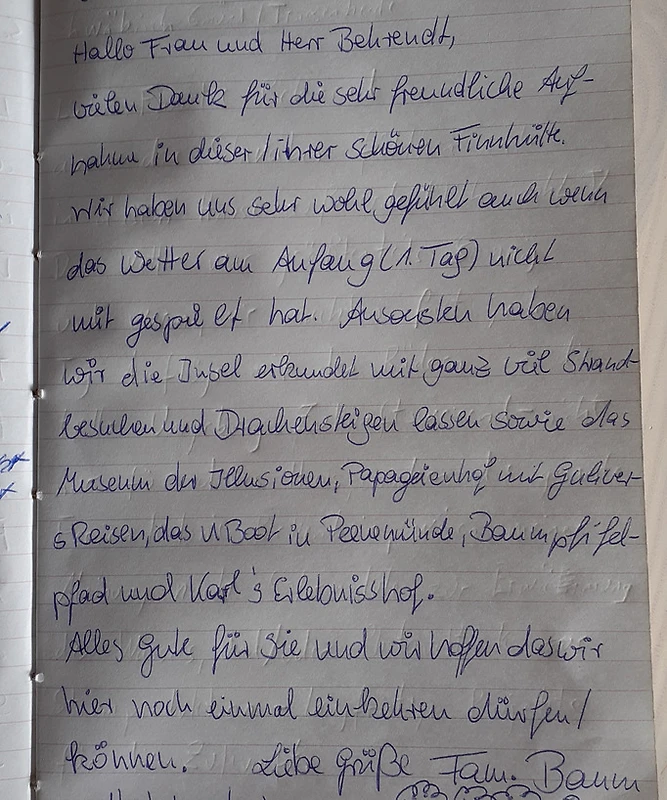 Hallo Frau und Herr Behrendt,
vielen Dank für die sehr freundliche Auf-
nahme in dieser/ihrer schönen Finnhütte.
Wir haben uns sehr wohl gefühlt auch wenn
das Wetter am Anfang (1. Tag) nicht
mit gespielt hat. Ansonsten haben
wir die Insel erkundet mit ganz viel Strand-
besuchen und Drachensteigen lassen sowie das
Museum der Illusionen, Papageienhof mit Guliver-
s Reisen, das U Boot in Peenemünde, Baumpfifel-
pfad und Karl's Erlebnisshof.
Alles gute für Sie und wir hoffen das wir
hier noch einmal einkehren dürfen/
können. Liebe Grüße Fam. Baum